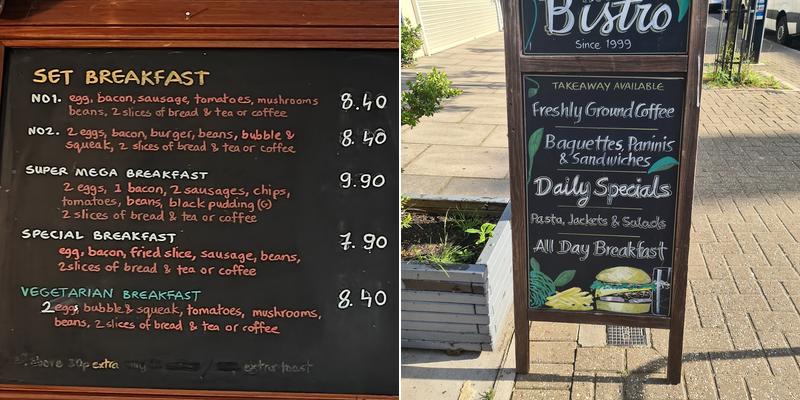 SET BREAKFAST
NO1. egg, bacon, sausage, tomatoes, mushrooms 8.40
beans, 2 slices of bread & tea or coffee
NO2. 2 eggs, bacon, burger, beans, bubble & 8.40
squeak, 2 slices of bread & tea or coffee
SUPER MEGA BREAKFAST 9.90
2 eggs, 1 bacon, 2 sausages, chips,
tomatoes, beans, black pudding
2 slices of bread & tea or coffee
SPECIAL BREAKFAST 7.90
egg, bacon, fried slice, sausage, beans,
2 slices of bread & tea or coffee
VEGETARIAN BREAKFAST 8.40
2 eggs, bubble & squeak, tomatoes, mushrooms,
beans, 2 slices of bread & tea or coffee
above 30p extra extra toast
Bistro
Since 1999
TAKEAWAY AVAILABLE
Freshly Ground Coffee
Baguettes, Paninis
& Sandwiches
Daily Specials
Pasta, Jackets & Salads
All Day Breakfast